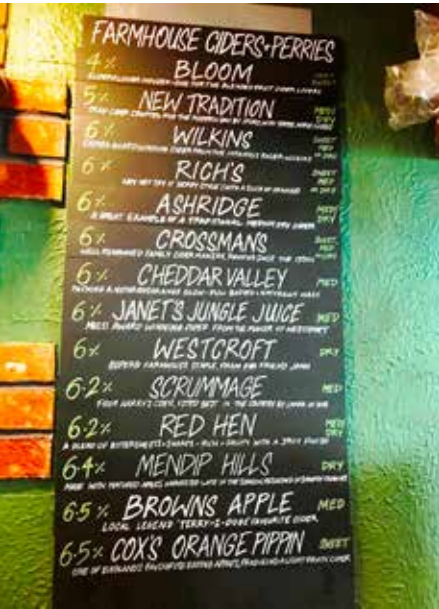 FARMHOUSE CIDERS+PERRIES
4% BLOOM
5% NEW TRADITION MED/DRY
6% WILKINS SWEET MED OR DRY
6% RICH'S SWEET MED OR DRY
6% ASHRIDGE MED/DRY
A GREAT EXAMPLE OF A TRADITIONAL MEDIUM DRY CIDER
6% CROSSMANS SWEET MED
WELL RENOWNED FAMILY CIDER MAKERS, SINCE THE
6% CHEDDAR VALLEY MED
6% JANET'S JUNGLE JUICE MED
AWARD WINNING CIDER FROM THE MAKER OF WESTCROFT
6% WESTCROFT DRY
SUPERB FARMHOUSE STAPLE, FROM OUR FRIEND JOHN
6.2% SCRUMMAGE MED
FROM HARRY'S CIDER, VOTED BEST IN THE COUNTRY BY
6.2% RED HEN MED DRY
A BLEND OF BITTERSWEET+SHARPS - RICH + FRUITY WITH A SPICY FINISH
6.4% MENDIP HILLS DRY
MADE WITH MATURED APPLES HARVESTED LATE IN THE SEASON,
6.5% BROWNS APPLE MED
LOCAL LEGEND 'TERRY-2-DOGS' FAVOURITE CIDER
6.5% COX'S ORANGE PIPPIN SWEET
ONE OF ENGLAND'S FAVOURITE EATING APPLES, PRODUCING A LIGHT FRUITY CIDER